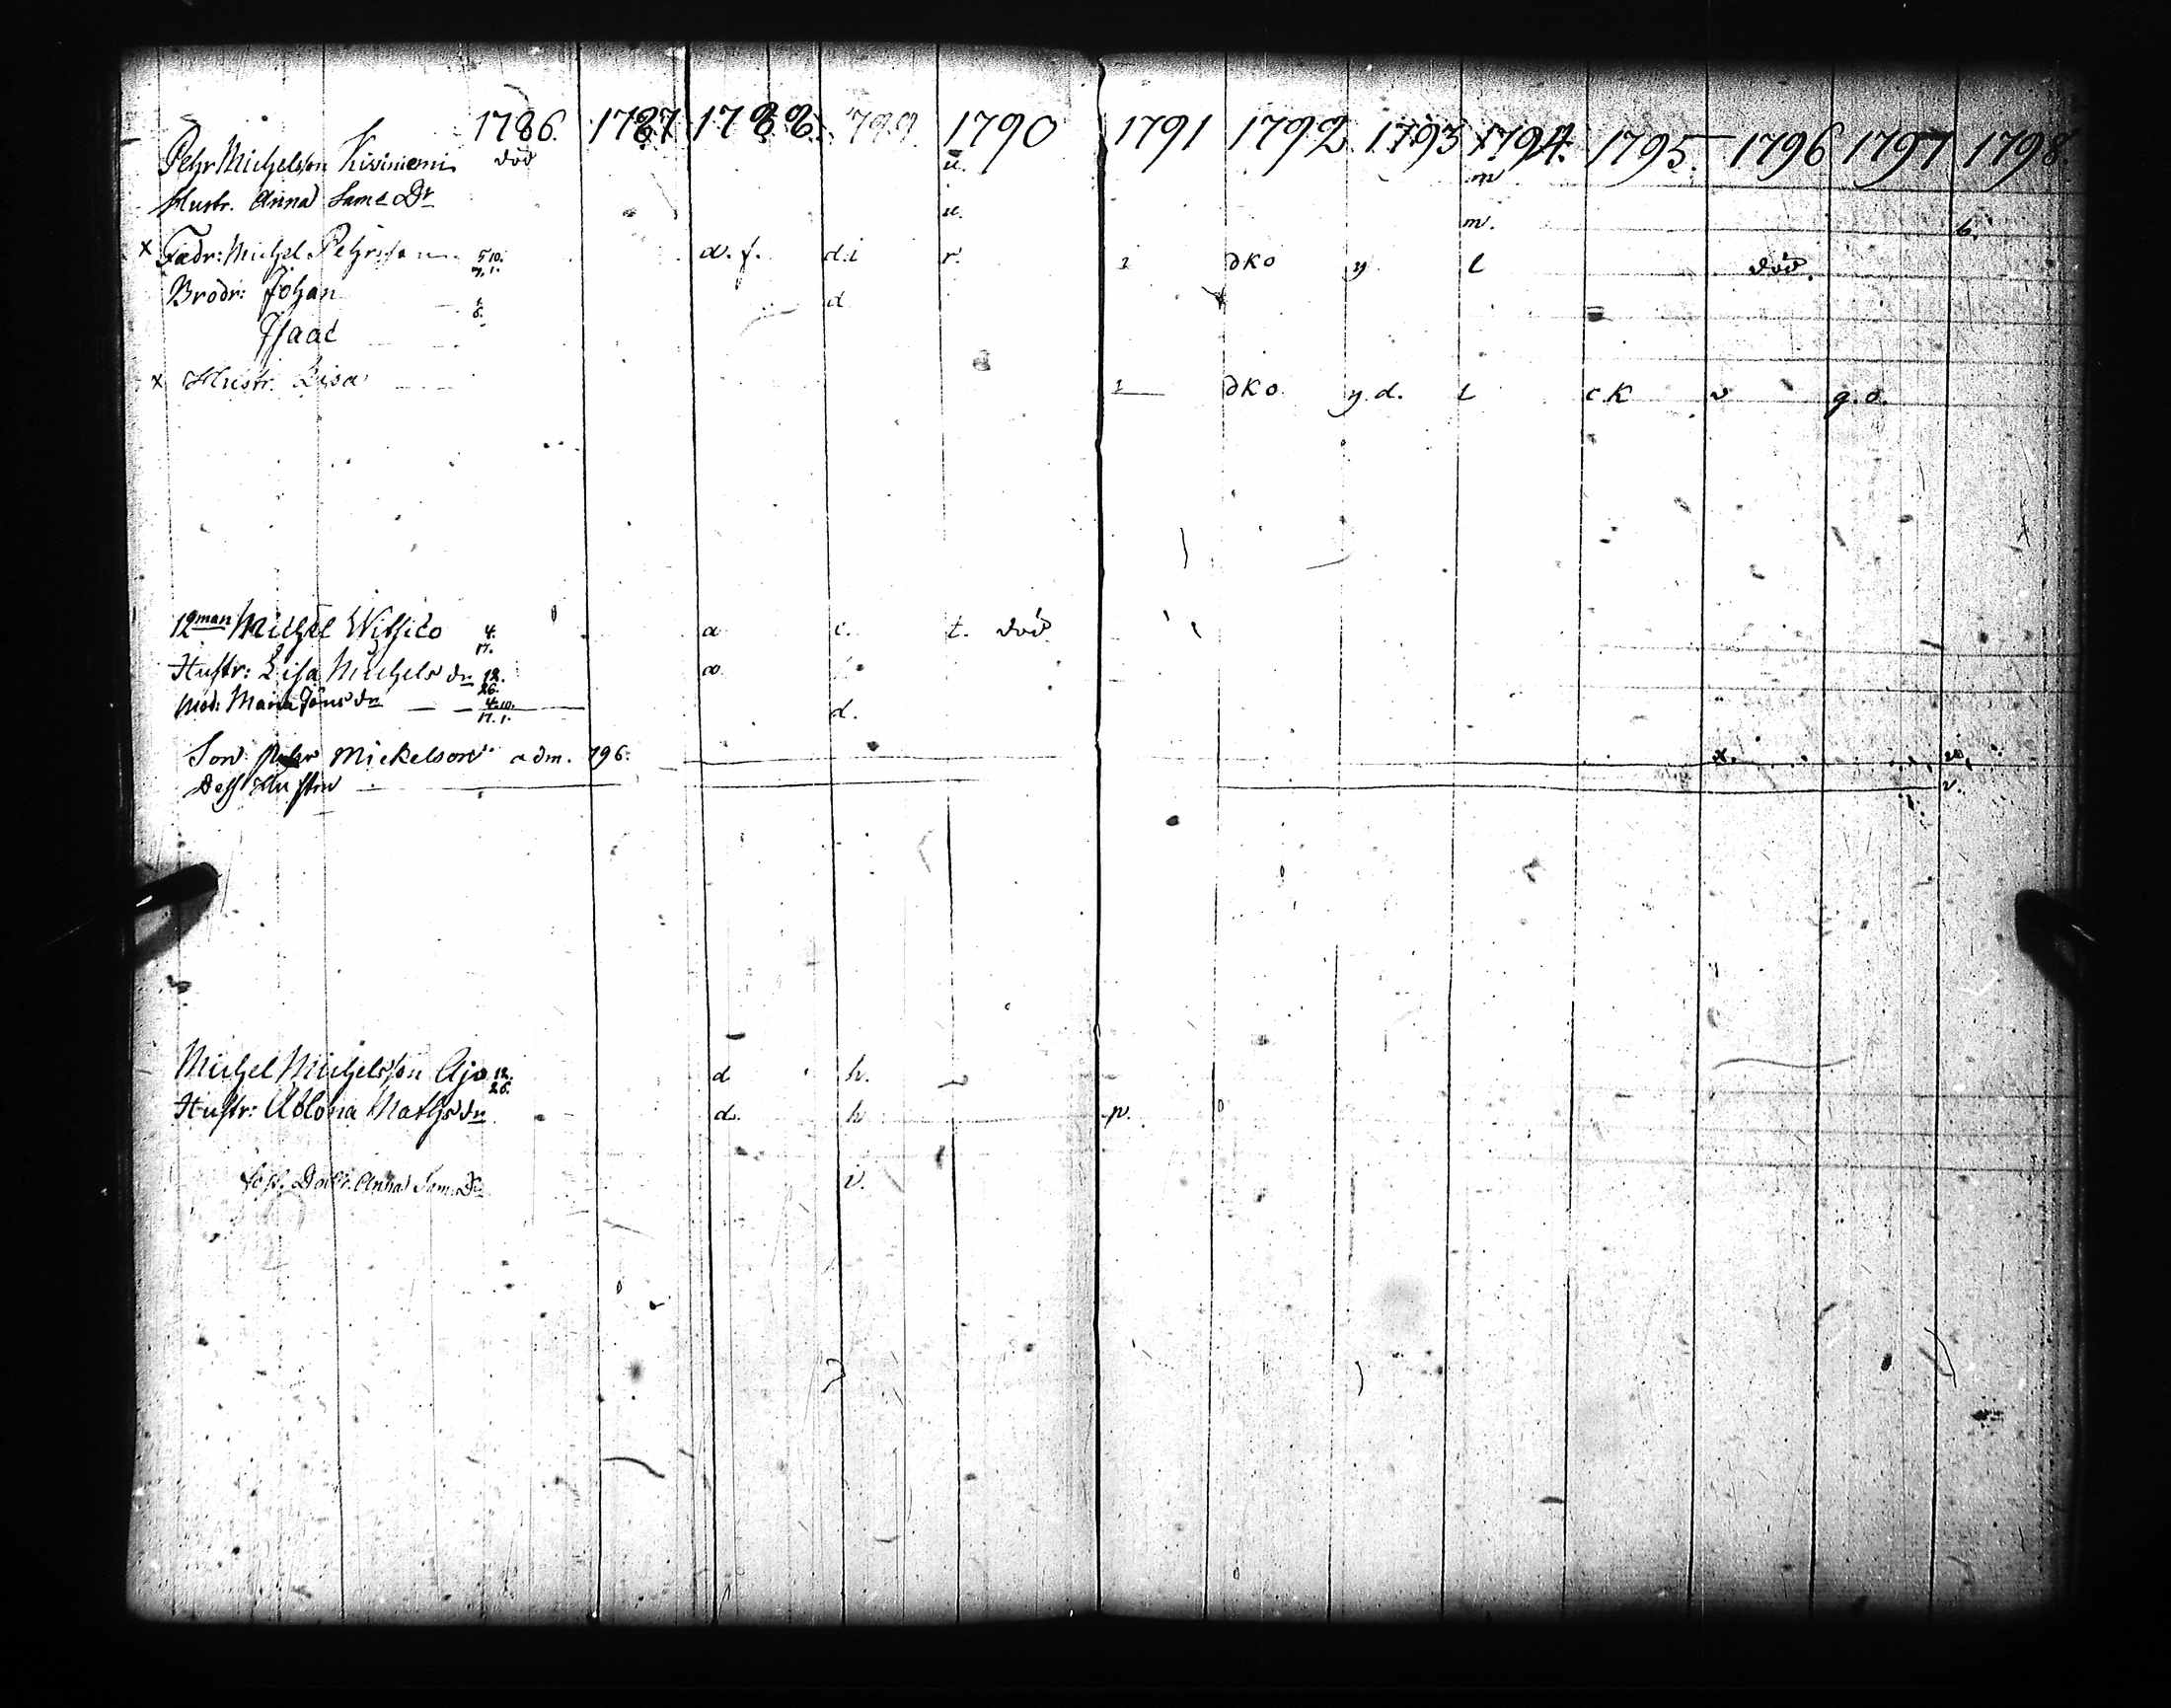 1786. 1787 1788. 789. 1790 1791 1792 1793 1794. 1795. 1796 1797 1798.
Pehr Michelsson Kiviniemi död u. m
Hustr. Anna Sam: Dr u. m. b.
x Fadr: Michel Pehrsson 5.10. 7.1. d. f. d.i r. 1 dko y l död.
Brodr: Johan 1. 8. d
Isaac
x Hustr. Lisa 1 dko y.d. l c.k v g.o.
12man Michel 4. 17. a c. t. död
Hustr: Lisa Michels dr 12. 26. a
Mod: Maria Jöns dr 4.10. 17.1. d.
Son Mickelson adm. 796. x.
Dess Hustru v.
Michel Michelsson Ajo 12. 26. d h.
Hustr: Ablona Mathsdr d. h p.
Dottr. Anna Sam. Dr v.